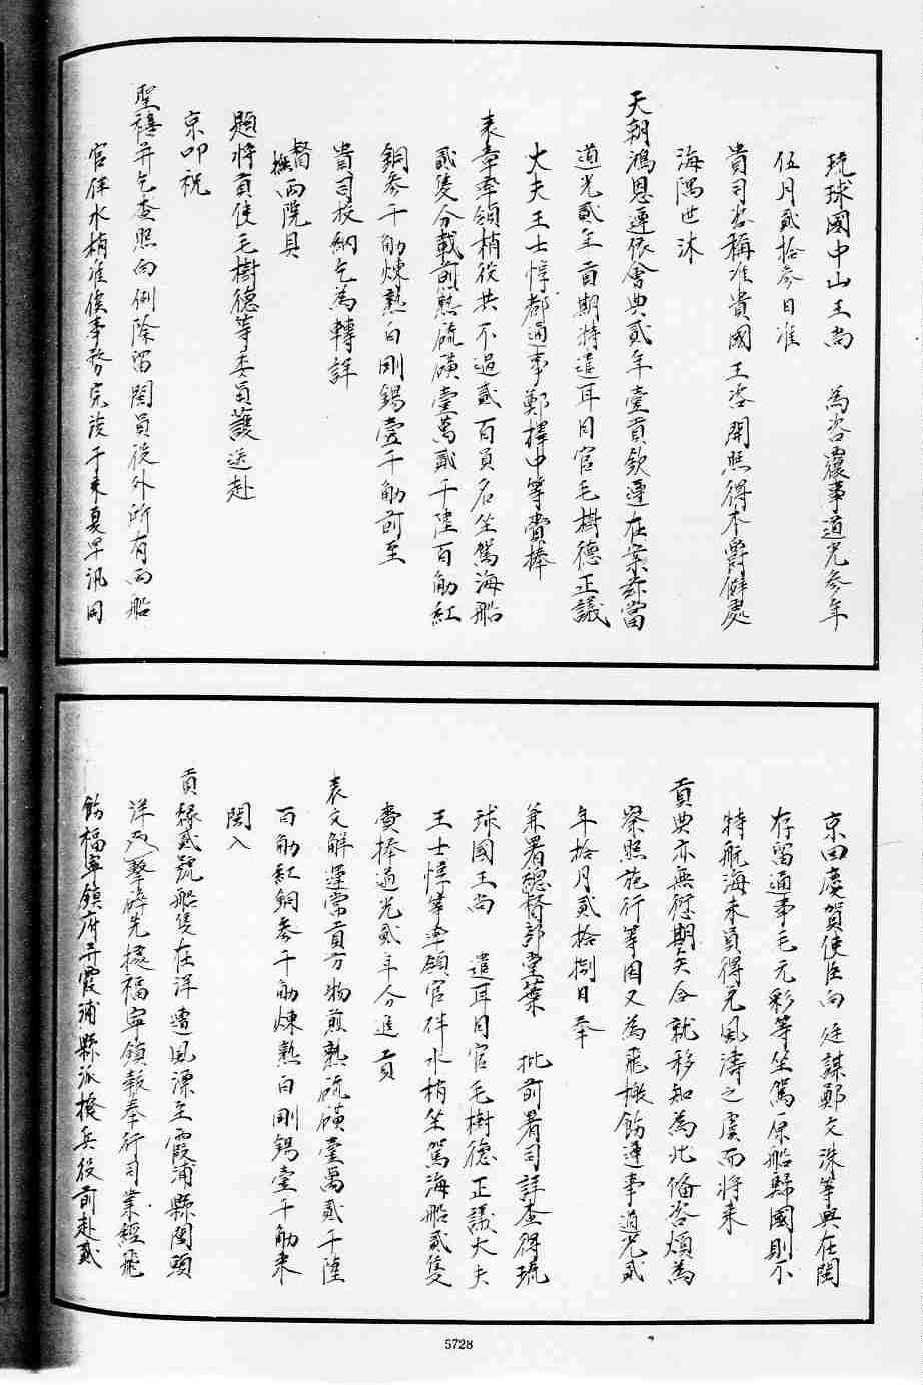 琉球國中山王尚　為咨覆事道光參年
伍月貳拾參日准
貴司咨稱准貴國王咨開照得本爵僻處
海隅世沐
天朝鴻恩遵依會典貳年壹貢欽遵在案茲當
道光貳年貢期特遣耳目官毛樹德正議
大夫王士惇都通事鄭擇中等賫捧
表章率領梢役共不過貳百員名坐駕海船
貳隻分載煎熟硫磺壹萬貳千陸百觔紅
銅參千觔煉熟白剛錫壹千觔前至
貴司投納乞為轉詳
督撫兩院具
題將貢使毛樹德等委員護送赴
京叩祝
聖禧并乞查照向例除留閩員役外所有兩船
官伴水梢准俟事務完竣于來夏早汛同
京回慶賀使臣向廷謀鄭文洙等與在閩
存留通事毛元彩等坐駕原船歸國則不
特航海末員得免風濤之虞而將來
貢典亦無愆期矣合就移知為此備咨煩為
察照施行等因又為飛檄飭遵事道光貳
年拾月貳拾捌日奉
兼署總督部堂葉　批前署司詳查得琉
球國王尚　遣耳目官毛樹德正議大夫
王士惇等率領官伴水梢坐駕海船貳隻
賫捧道光貳年分進貢
表文解運常貢方物煎熟硫磺壹萬貳千陸
百觔紅銅參千觔煉熟白剛錫壹千觔來
閩入
貢緣貳號船隻在洋遭風漂至霞浦縣閭頭
洋改擊碎先據福寧鎮報奉行司業經飛
飭福寧鎮府并霞浦縣派撥兵役前赴貳
5728